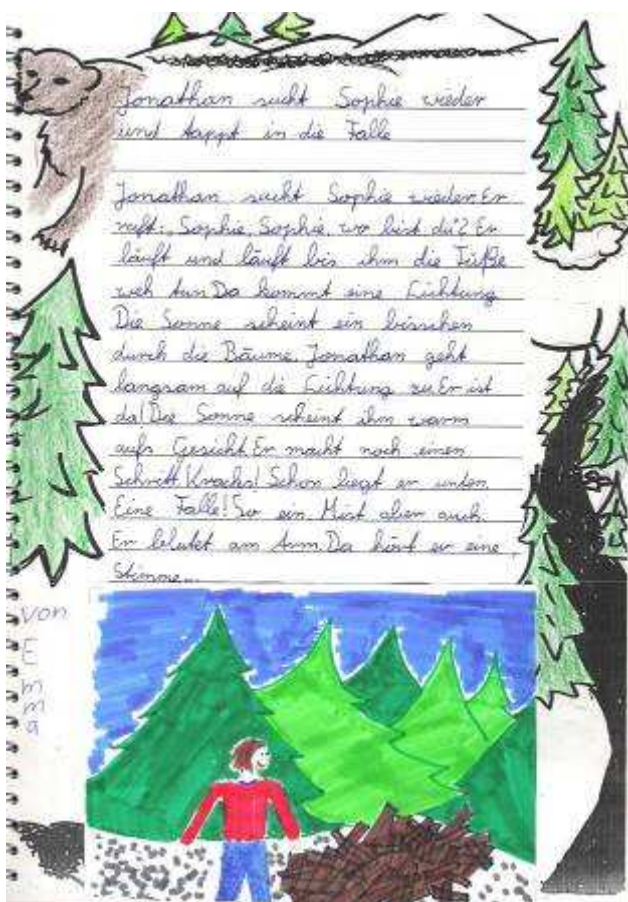 Jonathan sucht Sophie wieder
und tappt in die Falle
Jonathan sucht Sophie wieder. Er
ruft: „Sophie, Sophie, wo bist du"? Er
läuft und läuft bis ihm die Füße
weh tun. Da kommt eine Lichtung.
Die Sonne scheint ein bisschen
durch die Bäume. Jonathan geht
langsam auf die Lichtung zu. Er ist
da! Die Sonne scheint ihm warm
aufs Gesicht. Er macht noch einen
Schritt. Krachs! Schon liegt er unten.
Eine Falle! So ein Mist aber auch.
Er blutet am Arm. Da hört er eine
Stimme...
von
E
m
m
a